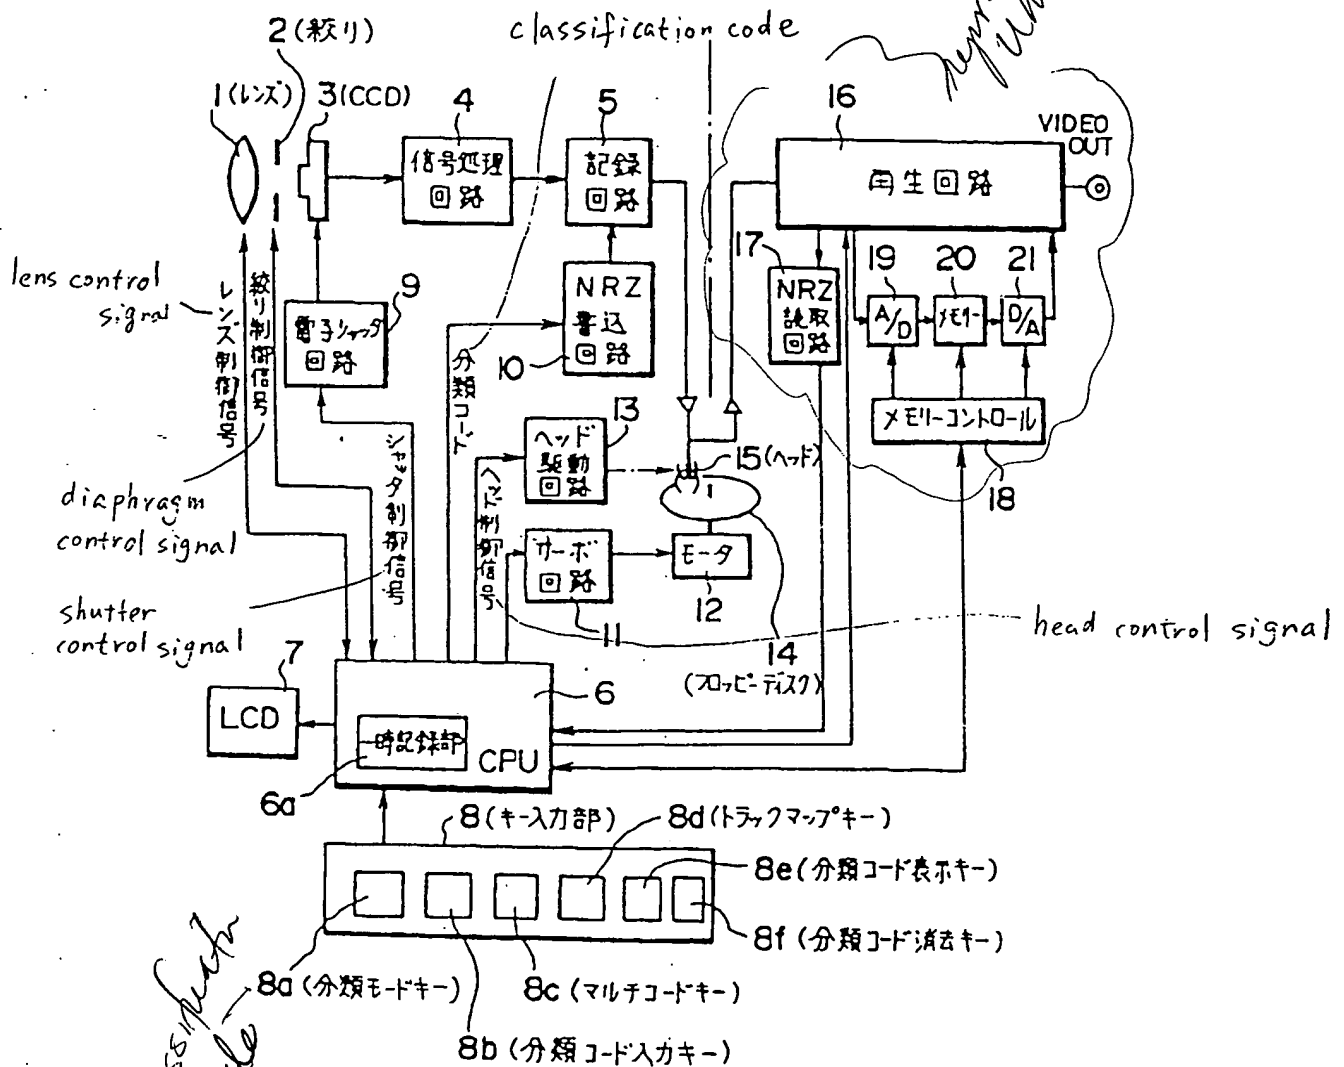 classification code
2 (絞り)
1 (レンズ)
3 (CCD)
4
5
16
VIDEO
OUT
信号処理
回路
記録
回路
再生回路
lens control
signal
レンズ制御信号
絞り制御信号
9
電子シャッタ
回路
NRZ
書込
回路
10
分類コード
17
NRZ
読取
回路
19
A/D
20
メモリー
21
D/A
メモリーコントロール
18
シャッタ制御信号
ヘッド制御信号
13
ヘッド
駆動
回路
15 (ヘッド)
diaphragm
control signal
サーボ
回路
11
モータ
12
14
(フロッピーディスク)
shutter
control signal
head control signal
7
LCD
6
一時記録部
CPU
6a
8 (キー入力部)
8d (トラックマップキー)
8e (分類コード表示キー)
8f (分類コード消去キー)
8a (分類モードキー)
8c (マルチコードキー)
8b (分類コード入力キー)